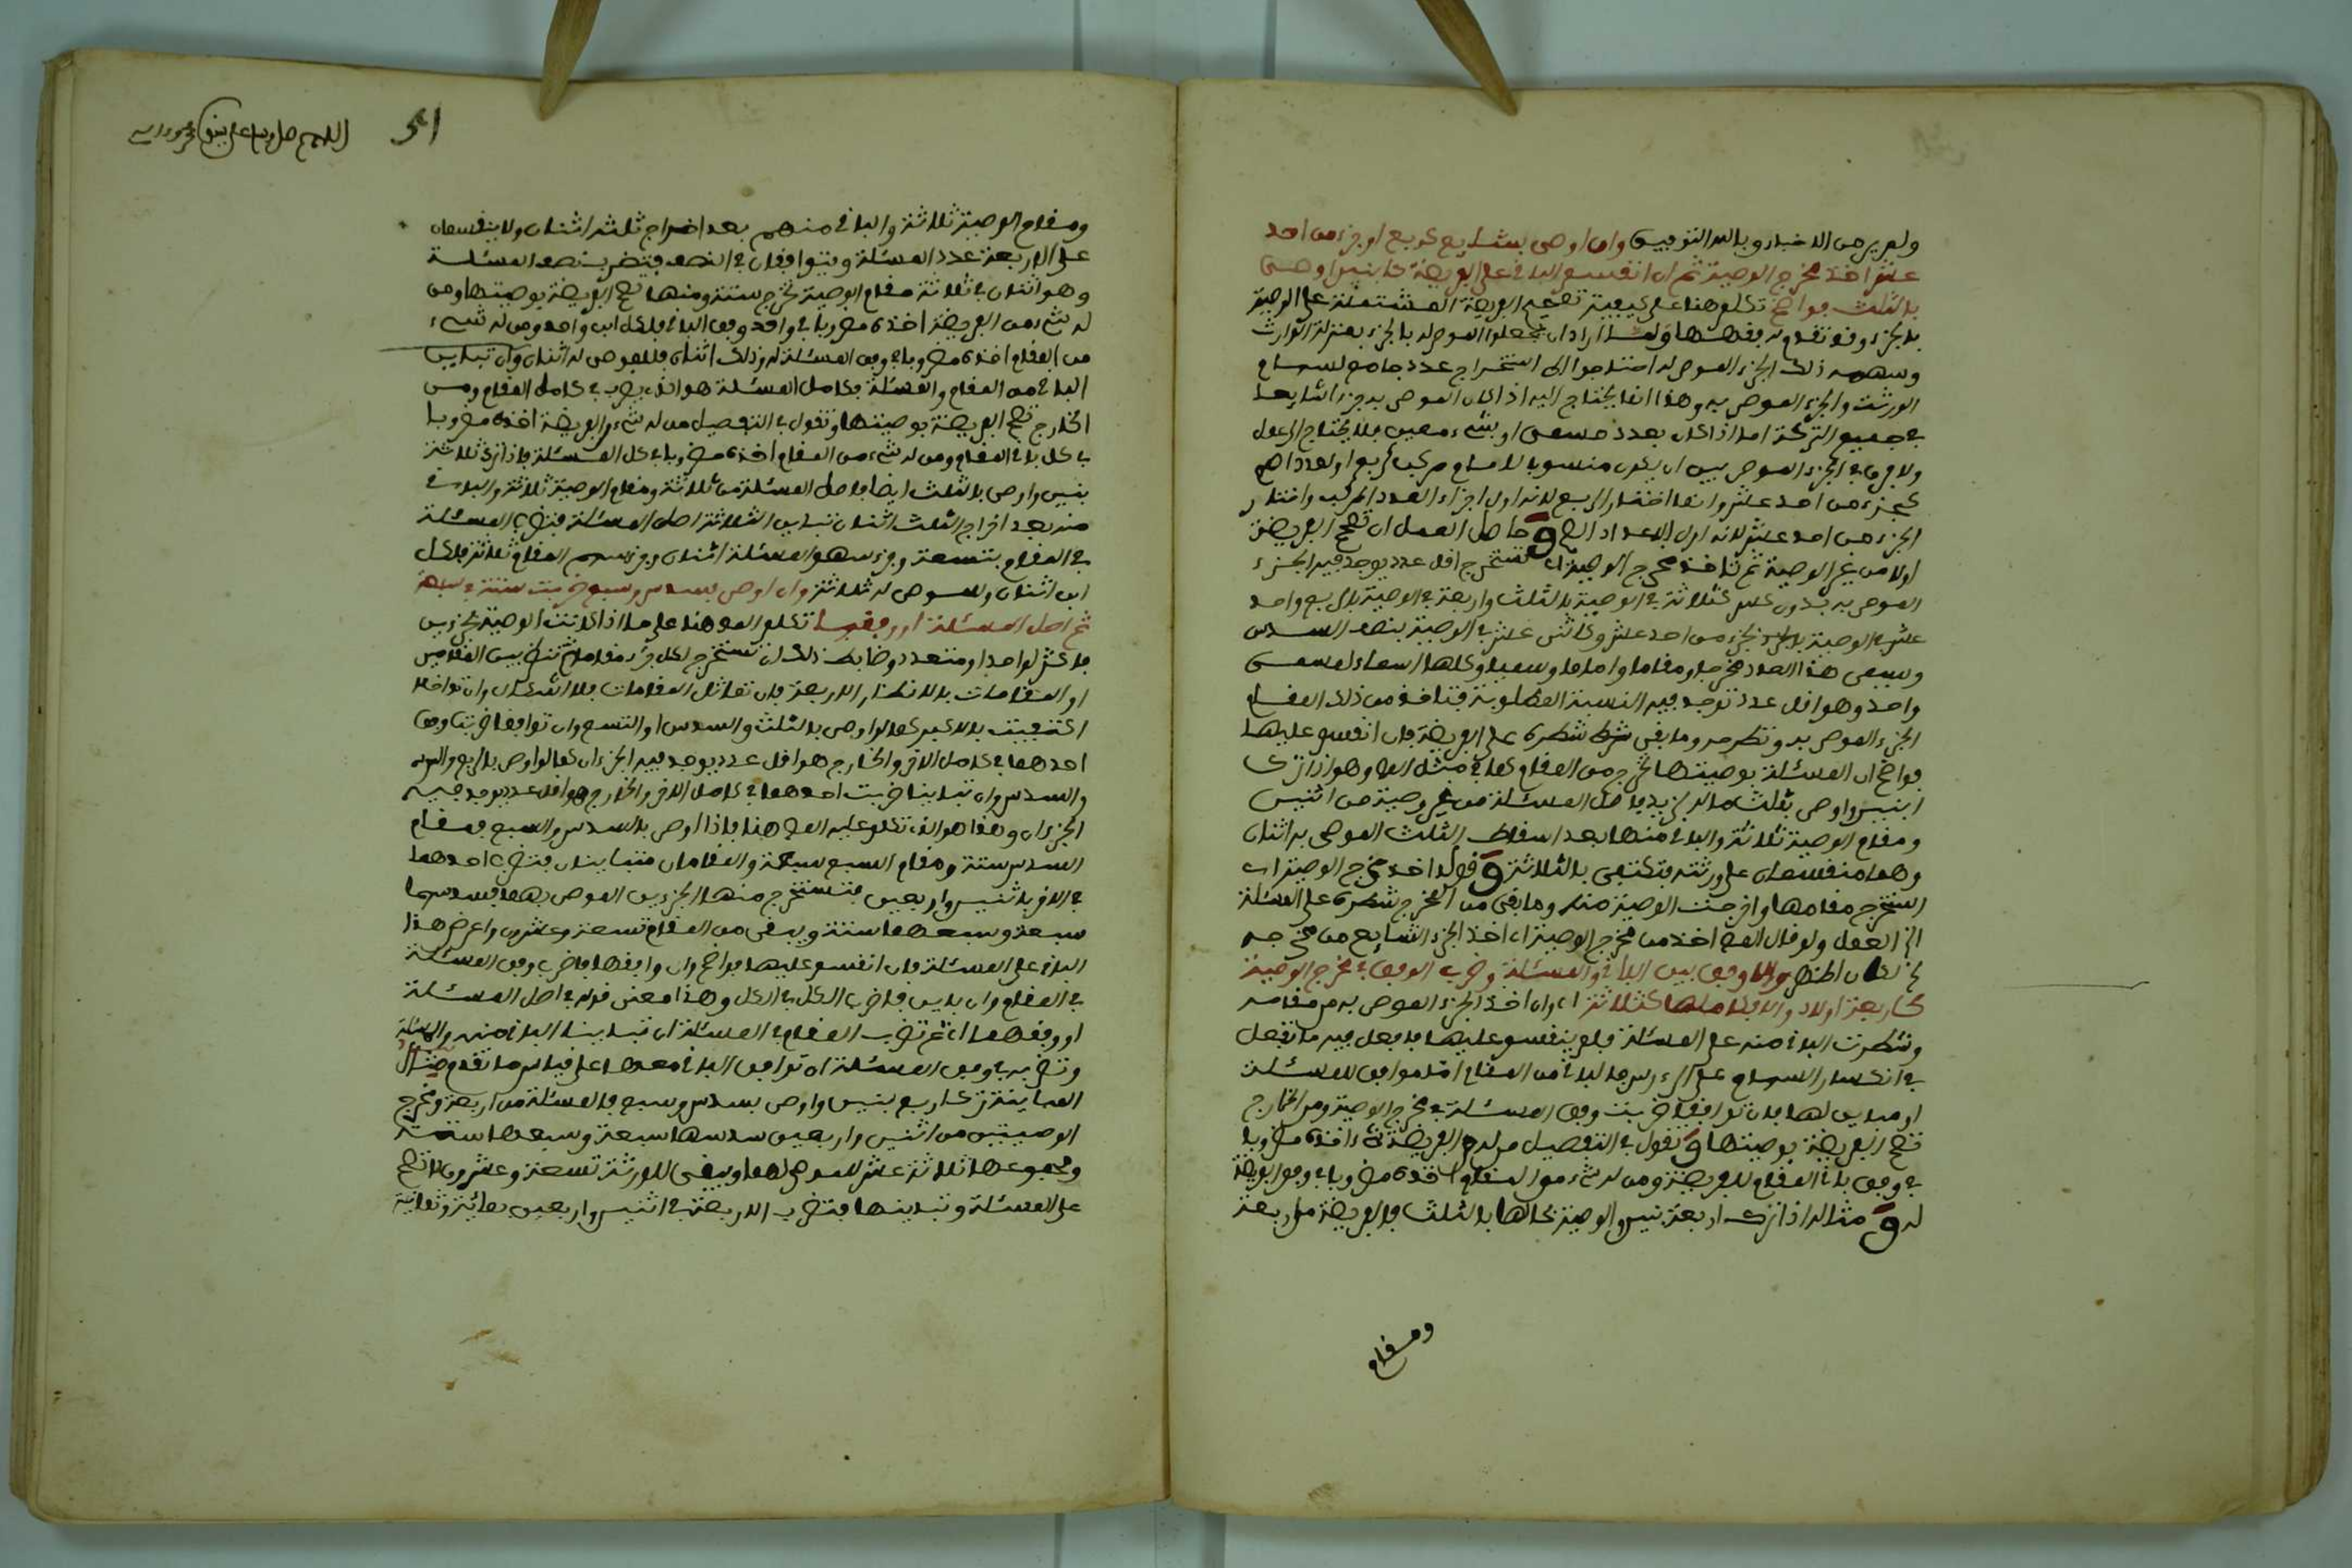 ولم يرمن الاخبار وبالله التوفيق وان اوصى بشايع كربع او جزء من احد
عشر اخذ مخرج الوصية ثم ان انقسم الباقي على الفريضة كابنين اوصى
بالثلث فواضح تكلم هنا على كيفية تصحيح الفريضة المشتملة على الوصية
بالجزء وقد تقدم فقهها ولما ارادان يجعلوا الموصى له بالجزء بمنزلة الوارث
وسهمه ذلك الجزء الموصى له احتاجوا الى استخراج عدد جامع لسهام
الورثة والجزء الموصى به وهذا انما يحتاج اليه اذا كان الموصى به جزءا شايعا
في جميع التركة اما اذا كان بعدد مسمى او بشيء معين فلا يحتاج الى عمل
ولا فرق في الجزء الموصى بين ان يكون منسوبا للامام مركب كربع او لعدد اصم
كجزء من احد عشر وانما اختار الربع لانه اول اجزاء العدد المركب واختار
الجزء من احد عشر لانه اول الاعداد الصم وحاصل العمل ان تصحح الفريضة
اولا من غير الوصية ثم تاخذ مخرج الوصية اي تستخرج اقل عدد يوجد فيه الجزء
الموصى به بدون كسر كثلاثة في الوصية بالثلث واربعة في الوصية بالربع واحد
عشر في الوصية بالجزء من احد عشر وكاثنى عشر في الوصية بنصف السدس
ويسمى هذا العدد مخرجا ومقاما واماما وسميا وكلها اسماء لمسمى
واحد وهو اقل عدد توجد فيه النسبة المطلوبة فتاخذ من ذلك المقام
الجزء الموصى به وتطرحه وما بقي تنظره على الفريضة فان انقسم عليها
فواضح ان المسئلة بوصيتها تخرج من المقام كما في مثال المص وهو اذا ترك
ابنين واوصى بثلث ماله لزيد فاصل المسئلة من غير وصية من اثنين
ومقام الوصية ثلاثة والباقي منها بعد اسقاط الثلث الموصى به اثنان
وهما منقسمان على ورثته فتكتفى بالثلاثة وقوله اخذ مخرج الوصية اي
استخرج مقامها واخرجت الوصية منه وما بقي من المخرج تنظره على المسئلة
الخ العمل ولو قال المص اخذ من مخرج الوصية اي اخذ الجزء الشايع من مخرجه
لكان اظهر والا وفق بين الباقي والمسئلة وضرب الوفق في مخرج الوصية
كاربعة اولاد والا فكاملها كثلاثة اي وان اخذ الجزء الموصى به من مقامه
ونظرت الباقي منه على المسئلة فلم ينقسم عليها فافعل فيه ما تفعل
في انكسار السهام على الرءوس فالباقي من المقام اما موافق للمسئلة
او مباين لها فان توافقا ضربت وفق المسئلة في مخرج الوصية ومن الخارج
تصح الفريضة بوصيتها وتقول في التفصيل من له من الفريضة شيء اخذه مضروبا
في وفق باقي المقام للفريضة ومن له شيء من المقام اخذه مضروبا في وفق الفريضة
له ومثاله اذا ترك اربعة بنين والوصية بحالها بالثلث فالفريضة من اربعة
ومقام
31
اللهم صل وسلم على نبيك
ومقام الوصية ثلاثة والباقي منهم بعد اخراج ثلثه اثنان ولا ينقسمان
على الاربعة عدد المسئلة ويتوافقان في النصف فيضرب نصف المسئلة
وهو اثنان في ثلاثة مقام الوصية تخرج ستة ومنها تصح الفريضة بوصيتها ومن
له شيء من الفريضة اخذه مضروبا في واحد وفق الباقي فلكل ابن واحد ومن له شيء
من المقام اخذه مضروبا في وفق المسئلة له وذلك اثنان فللموصى له اثنان وان تباين
الباقي من المقام والمسئلة فكامل المسئلة هو الذي يضرب في كامل المقام ومن
الخارج تصح الفريضة بوصيتها وتقول في التفصيل من له شيء من الفريضة اخذه مضروبا
في كل باقي المقام ومن له شيء من المقام اخذه مضروبا في كل المسئلة فاذا ترك ثلاثة
بنين واوصى بالثلث ايضا فاصل المسئلة من ثلاثة ومقام الوصية ثلاثة والباقي
منه بعد اخراج الثلث اثنان تباين الثلاثة اصل المسئلة فتضرب المسئلة
في المقام بتسعة وجزء سهم المسئلة اثنان وجزء سهم المقام ثلاثة فلكل
ابن اثنان وللموصى له ثلاثة وان اوصى بسدس وسبع ضربت ستة في سبعة
ثم اصل المسئلة او وفقها تكلم المص هنا على ما اذا كانت الوصية بجزءين
فاكثر لواحد او متعدد وضابط ذلك ان تستخرج لكل جزء مقاما ثم تنظر بين المقامين
او المقامات بالانظار الاربعة فان تماثل المقامات فلا اشكال وان تداخلا
اكتفيت بالاكبر كما لو اوصى بالثلث والسدس او التسع وان توافقا ضربت وفق
احدهما في كامل الاخر والخارج هو اقل عدد يوجد فيه الجزءان كما لو اوصى بالربع
والسدس وان تباينا ضربت احدهما في كامل الاخر والخارج هو اقل عدد يوجد فيه
الجزءان وهذا هو الذي تكلم عليه المص هنا فاذا اوصى بالسدس والسبع فمقام
السدس ستة ومقام السبع سبعة والمقامان متباينان فتضرب احدهما
في الاخر باثنين واربعين فتستخرج منها الجزءين الموصى بهما فسدسها
سبعة وسبعها ستة ويبقى من المقام تسعة وعشرون اعرض هذا
الباقي على المسئلة فان انقسم عليها فواضح وان وافقها فاضرب وفق المسئلة
في المقام وان باين فاضرب الكل في الكل وهذا معنى قوله في اصل المسئلة
او وفقها اي ثم تضرب المقام في المسئلة ان تباينا الباقي منه والمسئلة
وتضربه في وفق المسئلة ان توافق الباقي معها على قياس ما تقدم مثال
المباينة ترك اربع بنين واوصى بسدس وسبع فالمسئلة من اربعة ومخرج
الوصيتين من اثنين واربعين سدسها سبعة وسبعها ستة
ومجموعها ثلاثة عشر للموصى لهما ويبقى للورثة تسعة وعشرون لا تصح
على المسئلة وتباينها فتضرب الاربعة في اثنين واربعين بمائة وثمانية